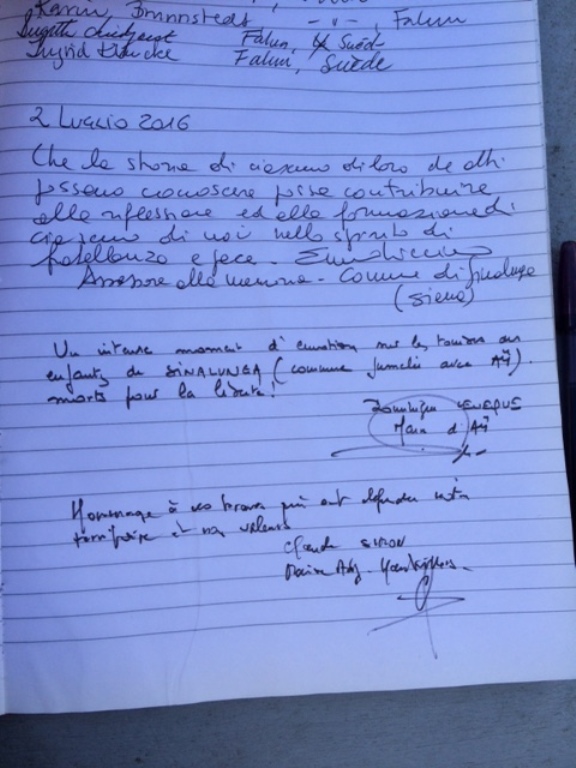 Karin Brunnstedt - " - , Falun
Falun, Suède
Ingrid Falun, Suède
2 Luglio 2016
Che la storia di ciascuno di loro che
possano conoscere possa contribuire
alla riflessione ed alla formazione di
ciascuno di noi nello spirito di
fratellanza e pace.
Assessore alla memoria - Comune di Sinalunga
(Siena)
Un intense moment d'émotion sur les tombes des
enfants de SINALUNGA (commune jumelée avec AŸ).
morts pour la liberté!
Dominique LEVEQUE
Maire d'AŸ
Hommage à ces braves qui ont défendu notre
territoire et nos valeurs
Claude SIMON
Maire Adj.